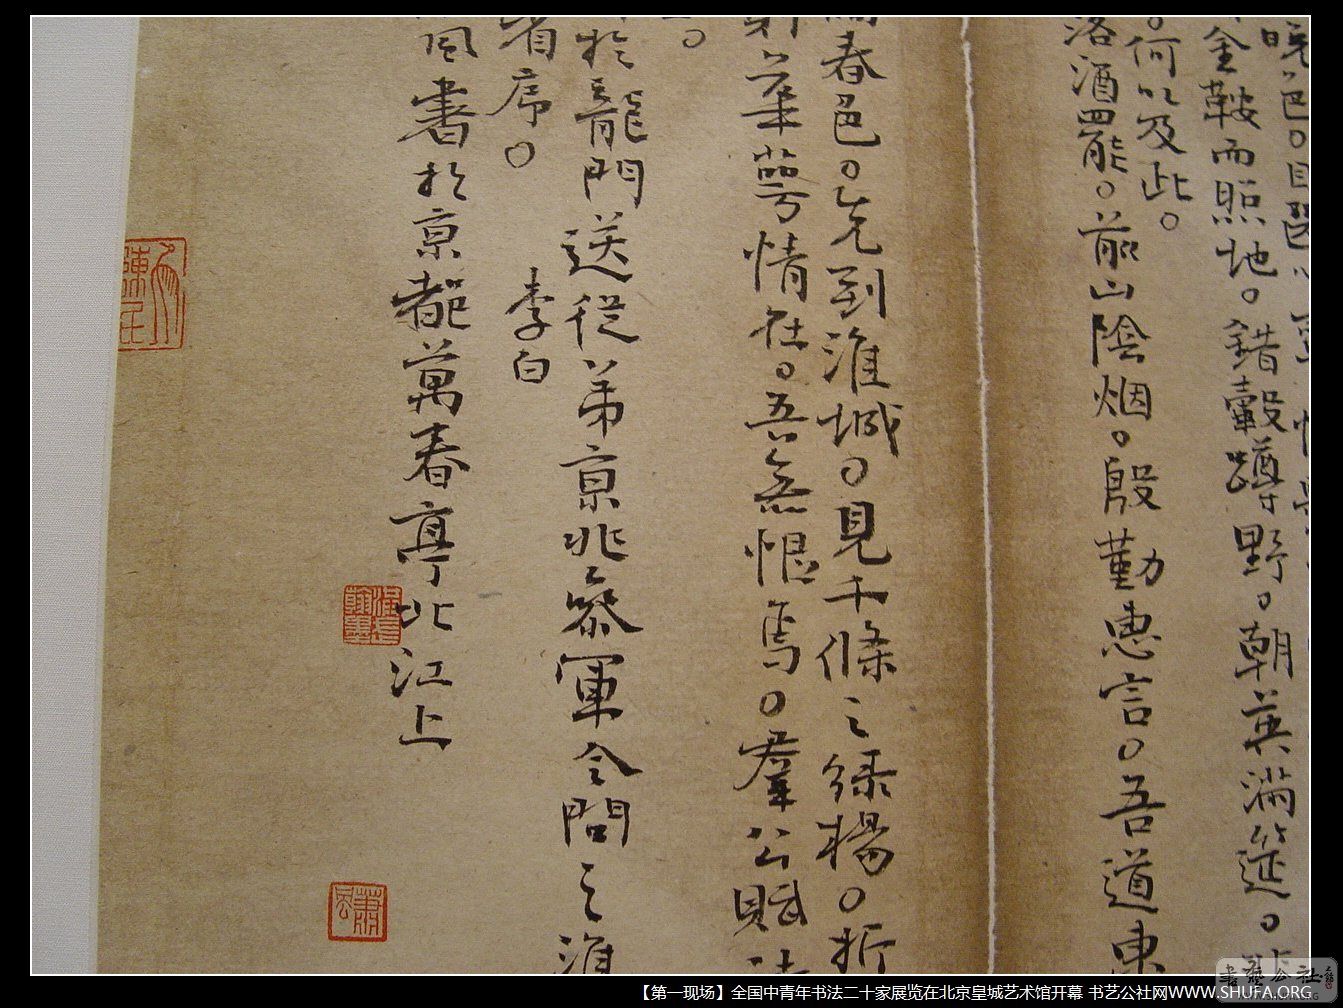 晚色。目
金鞍而照地。錯轂蹲野。朝英滿筵。
。何以及此。
落酒罷。前山陰烟。殷勤惠言。吾道東
春色。先到淮城。見千條之綠楊。折
則華萼情在。吾無恨焉。羣公賦
。
於龍門送從弟京兆參軍令問之淮
省序。
李白
風書於京都萬春亭北江上
蕭風
書藝公社
【第一现场】全国中青年书法二十家展览在北京皇城艺术馆开幕 书艺公社网WWW.SHUFA.ORG